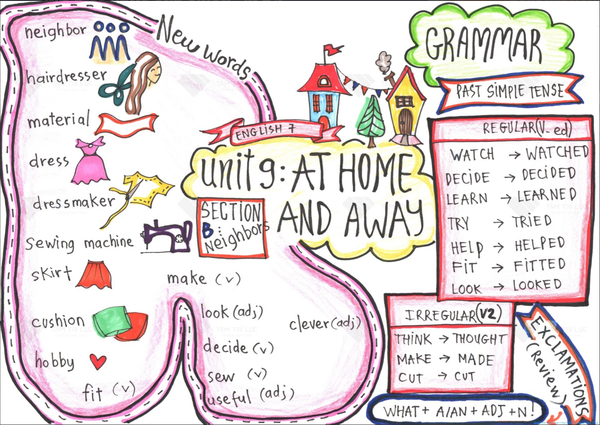 New Words
neighbor
hairdresser
material
dress
dressmaker
sewing machine
skirt
cushion
hobby
fit (v)
make (v)
look (adj)
decide (v)
sew (v)
useful (adj)
clever (adj)
ENGLISH 7
unit 9: AT HOME
AND AWAY
SECTION
B:
Neighbors
GRAMMAR
PAST SIMPLE TENSE
REGULAR (V-ed)
WATCH → WATCHED
DECIDE → DECIDED
LEARN → LEARNED
TRY → TRIED
HELP → HELPED
FIT → FITTED
LOOK → LOOKED
IRREGULAR (V2)
THINK → THOUGHT
MAKE → MADE
CUT → CUT
EXCLAMATIONS
(Review)
WHAT + A/AN + ADJ + N!